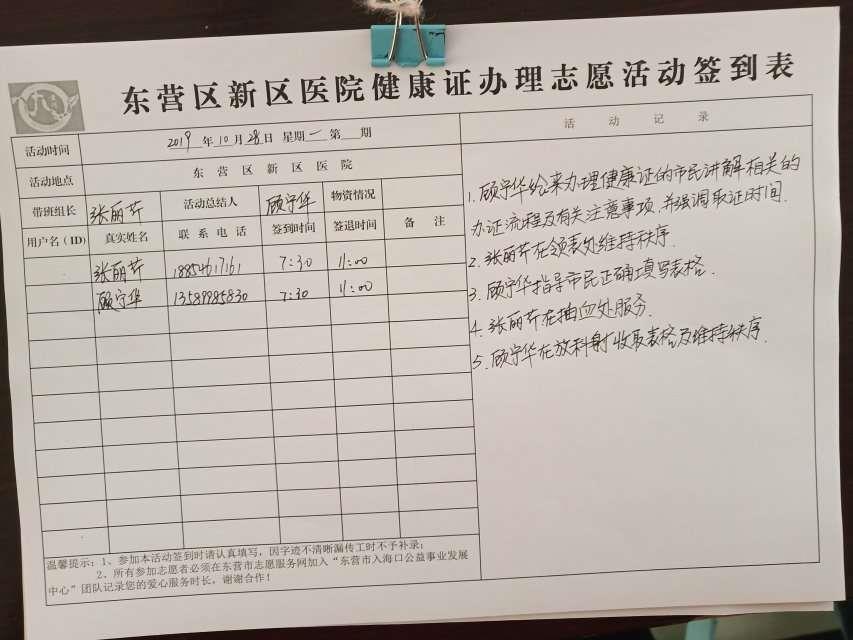 东营区新区医院健康证办理志愿活动签到表
活动时间 2019 年 10 月 28 日 星期一 第 期
活动记录
活动地点 东营区新区医院
带班组长 张丽芹 活动总结人 顾守华 物资情况
用户名(ID) 真实姓名 联系电话 签到时间 签退时间 备注
张丽芹 18854617161 7:30 11:00
顾守华 13589985830 7:30 11:00
1. 顾守华给来办理健康证的市民讲解相关的
办证流程及有关注意事项.并强调取证时间.
2. 张丽芹在领表处维持秩序.
3. 顾守华指导市民正确填写表格.
4. 张丽芹在抽血处服务.
5. 顾守华在放科射收取表格及维持秩序.
温馨提示:1、参加本活动签到时请认真填写,因字迹不清晰漏传工时不予补录;
2、所有参加志愿者必须在东营市志愿服务网加入“东营市入海口公益事业发展
中心”团队记录您的爱心服务时长,谢谢合作!